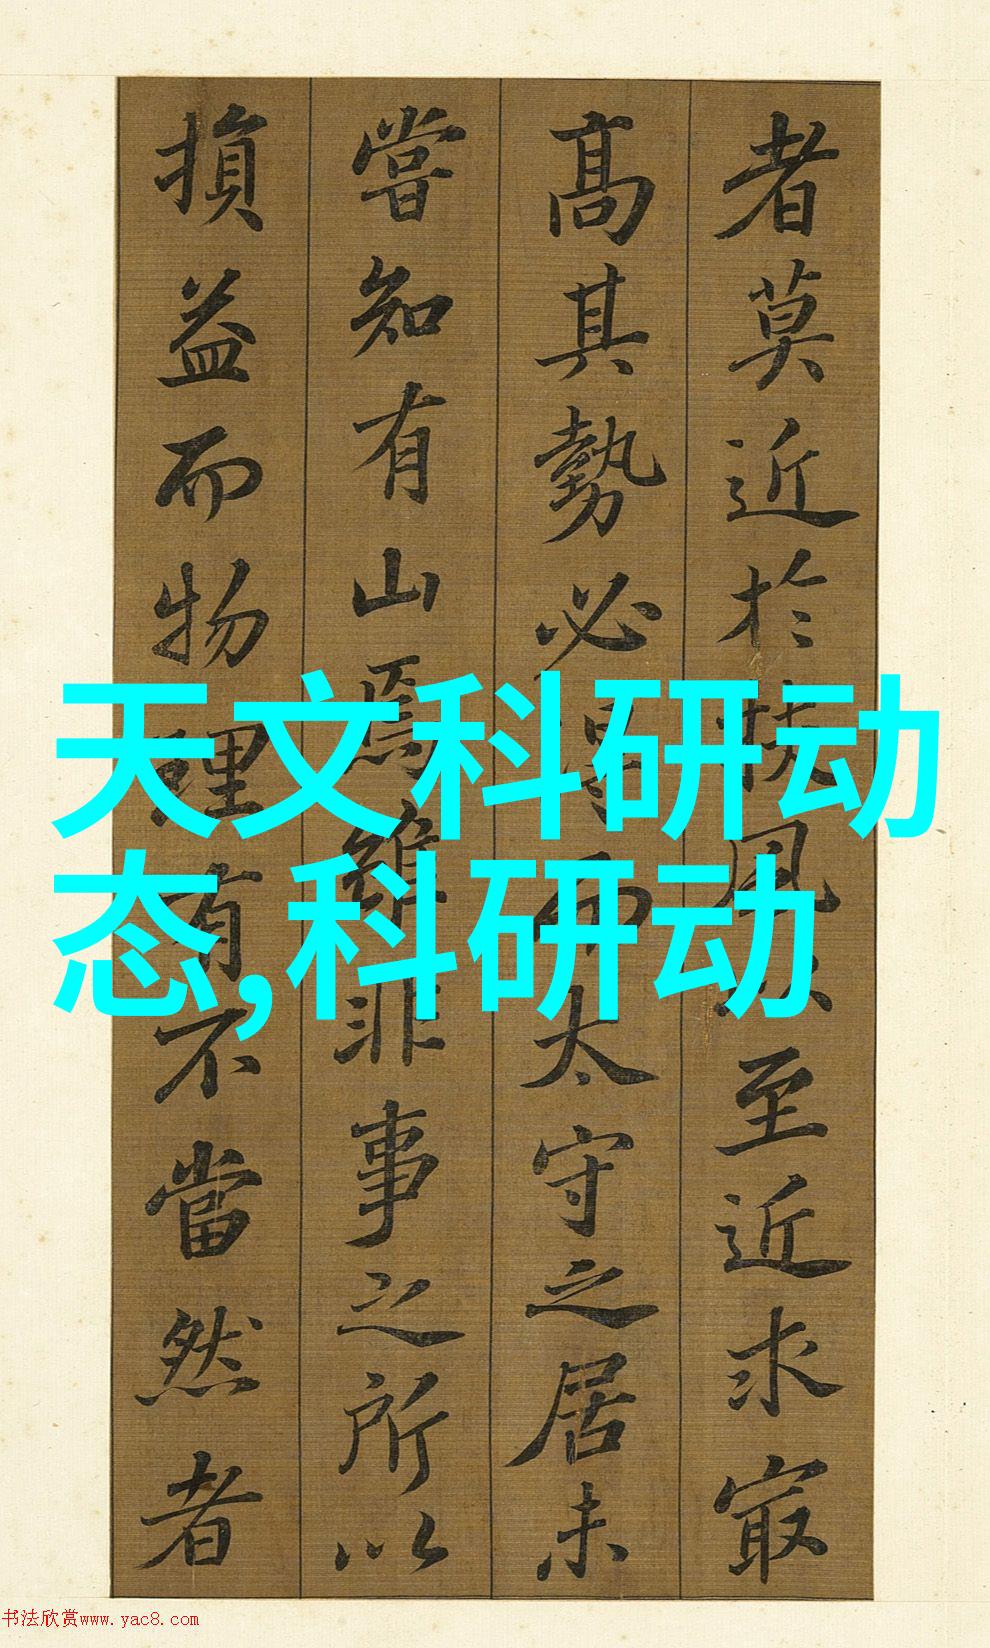 者莫近於扶風至近求㝡
髙其勢必而太守之居未
嘗知有山焉維非事之所以
損益而物理有不當然者
天文科研动
态,科研动
书法欣赏www.yac8.com